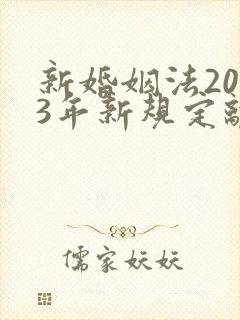 新婚姻法20
3年新规定离
儒家妖妖